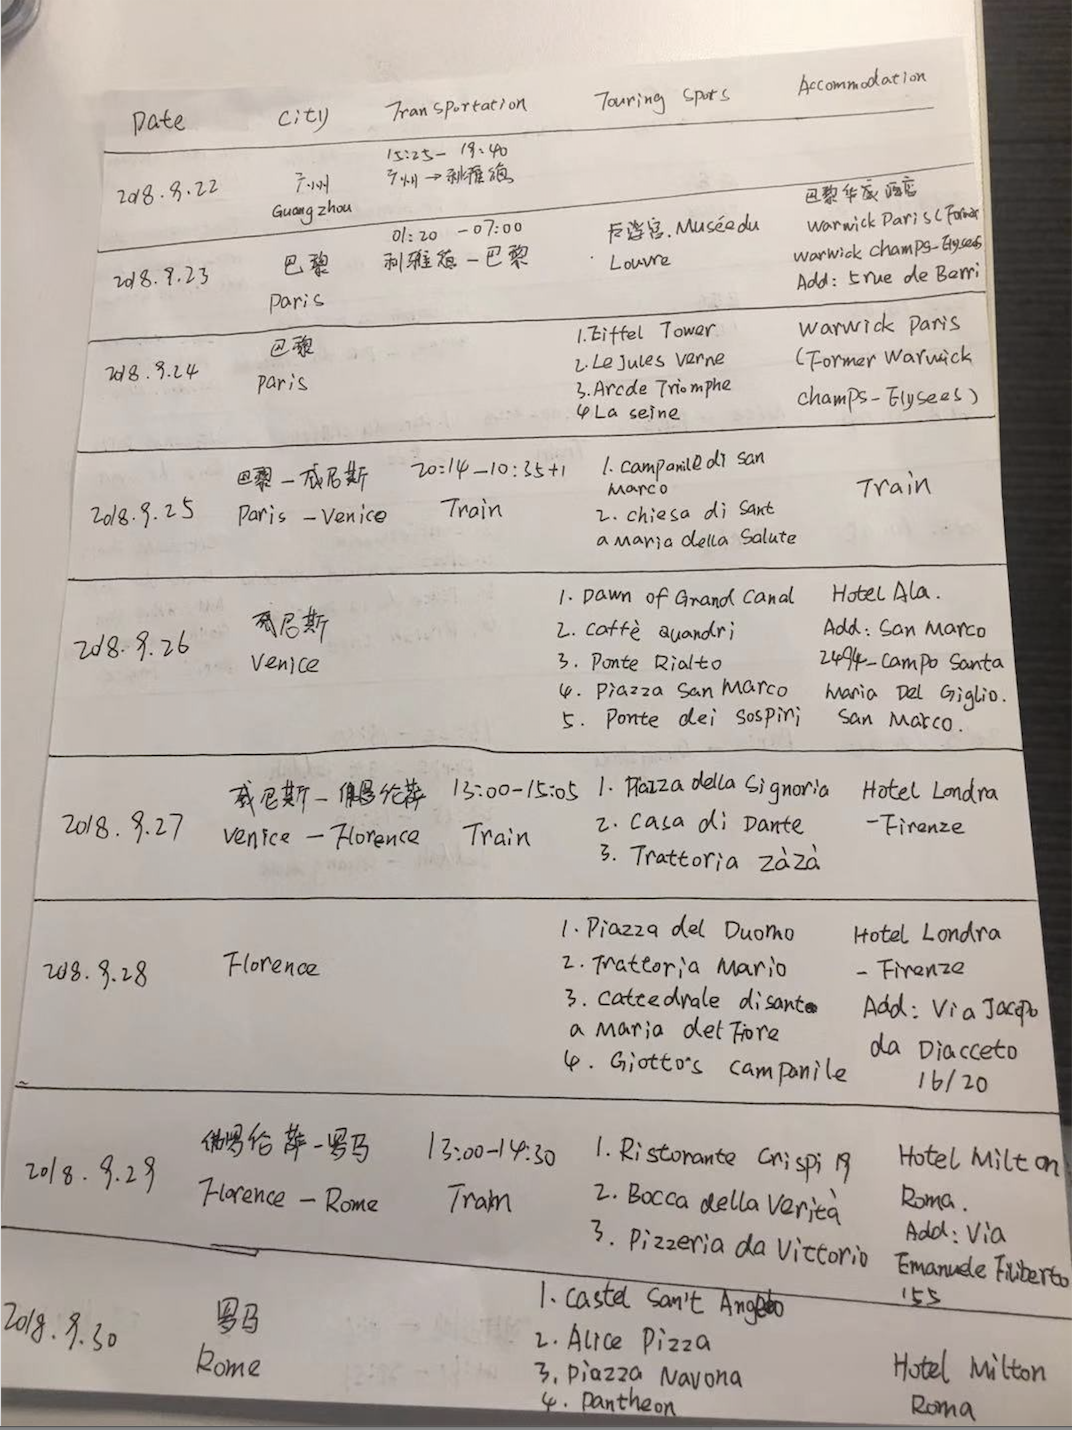 Date City Transportation Touring Spots Accommodation
2018.9.22
广州
Guangzhou
15:25 - 19:40
广州→利雅德
2018.9.23
巴黎
Paris
01:20 - 07:00
利雅德 - 巴黎
Musée du
Louvre
巴黎华威酒店
Warwick Paris (Former
Warwick Champs-Elysees
Add: 5 rue de Berri
2018.9.24
巴黎
Paris
1. Eiffel Tower
2. Le Jules Verne
3. Arc de Triomphe
4 La seine
Warwick Paris
(Former Warwick
Champs-Elysees)
2018.9.25
巴黎 - 威尼斯
Paris - Venice
20:14 - 10:35+1
Train
1. Campanile di San
Marco
2. Chiesa di Sant
a Maria della Salute
Train
2018.9.26
威尼斯
Venice
1. Dawn of Grand Canal
2. Caffè quandri
3. Ponte Rialto
4. Piazza San Marco
5. Ponte dei Sospiri
Hotel Ala.
Add: San Marco
2494-Campo Santa
Maria Del Giglio.
San Marco.
2018.9.27
威尼斯 - 佛罗伦萨
Venice - Florence
13:00-15:05
Train
1. Piazza della Signoria
2. Casa di Dante
3. Trattoria Zàzà
Hotel Londra
-Firenze
2018.9.28
Florence
1. Piazza del Duomo
2. Trattoria Mario
3. Cattedrale di Sant
a Maria del Fiore
4. Giotto's Campanile
Hotel Londra
- Firenze
Add: Via Jacopo
da Diacceto
16/20
2018.9.29
佛罗伦萨-罗马
Florence - Rome
13:00-14:30
Train
1. Ristorante Crispi 19
2. Bocca della Verità
3. Pizzeria da Vittorio
Hotel Milton
Roma.
Add: Via
Emanuele Filiberto
155
2018.9.30
罗马
Rome
1. Castel Sant Angelo
2. Alice Pizza
3. Piazza Navona
4. Pantheon
Hotel Milton
Roma